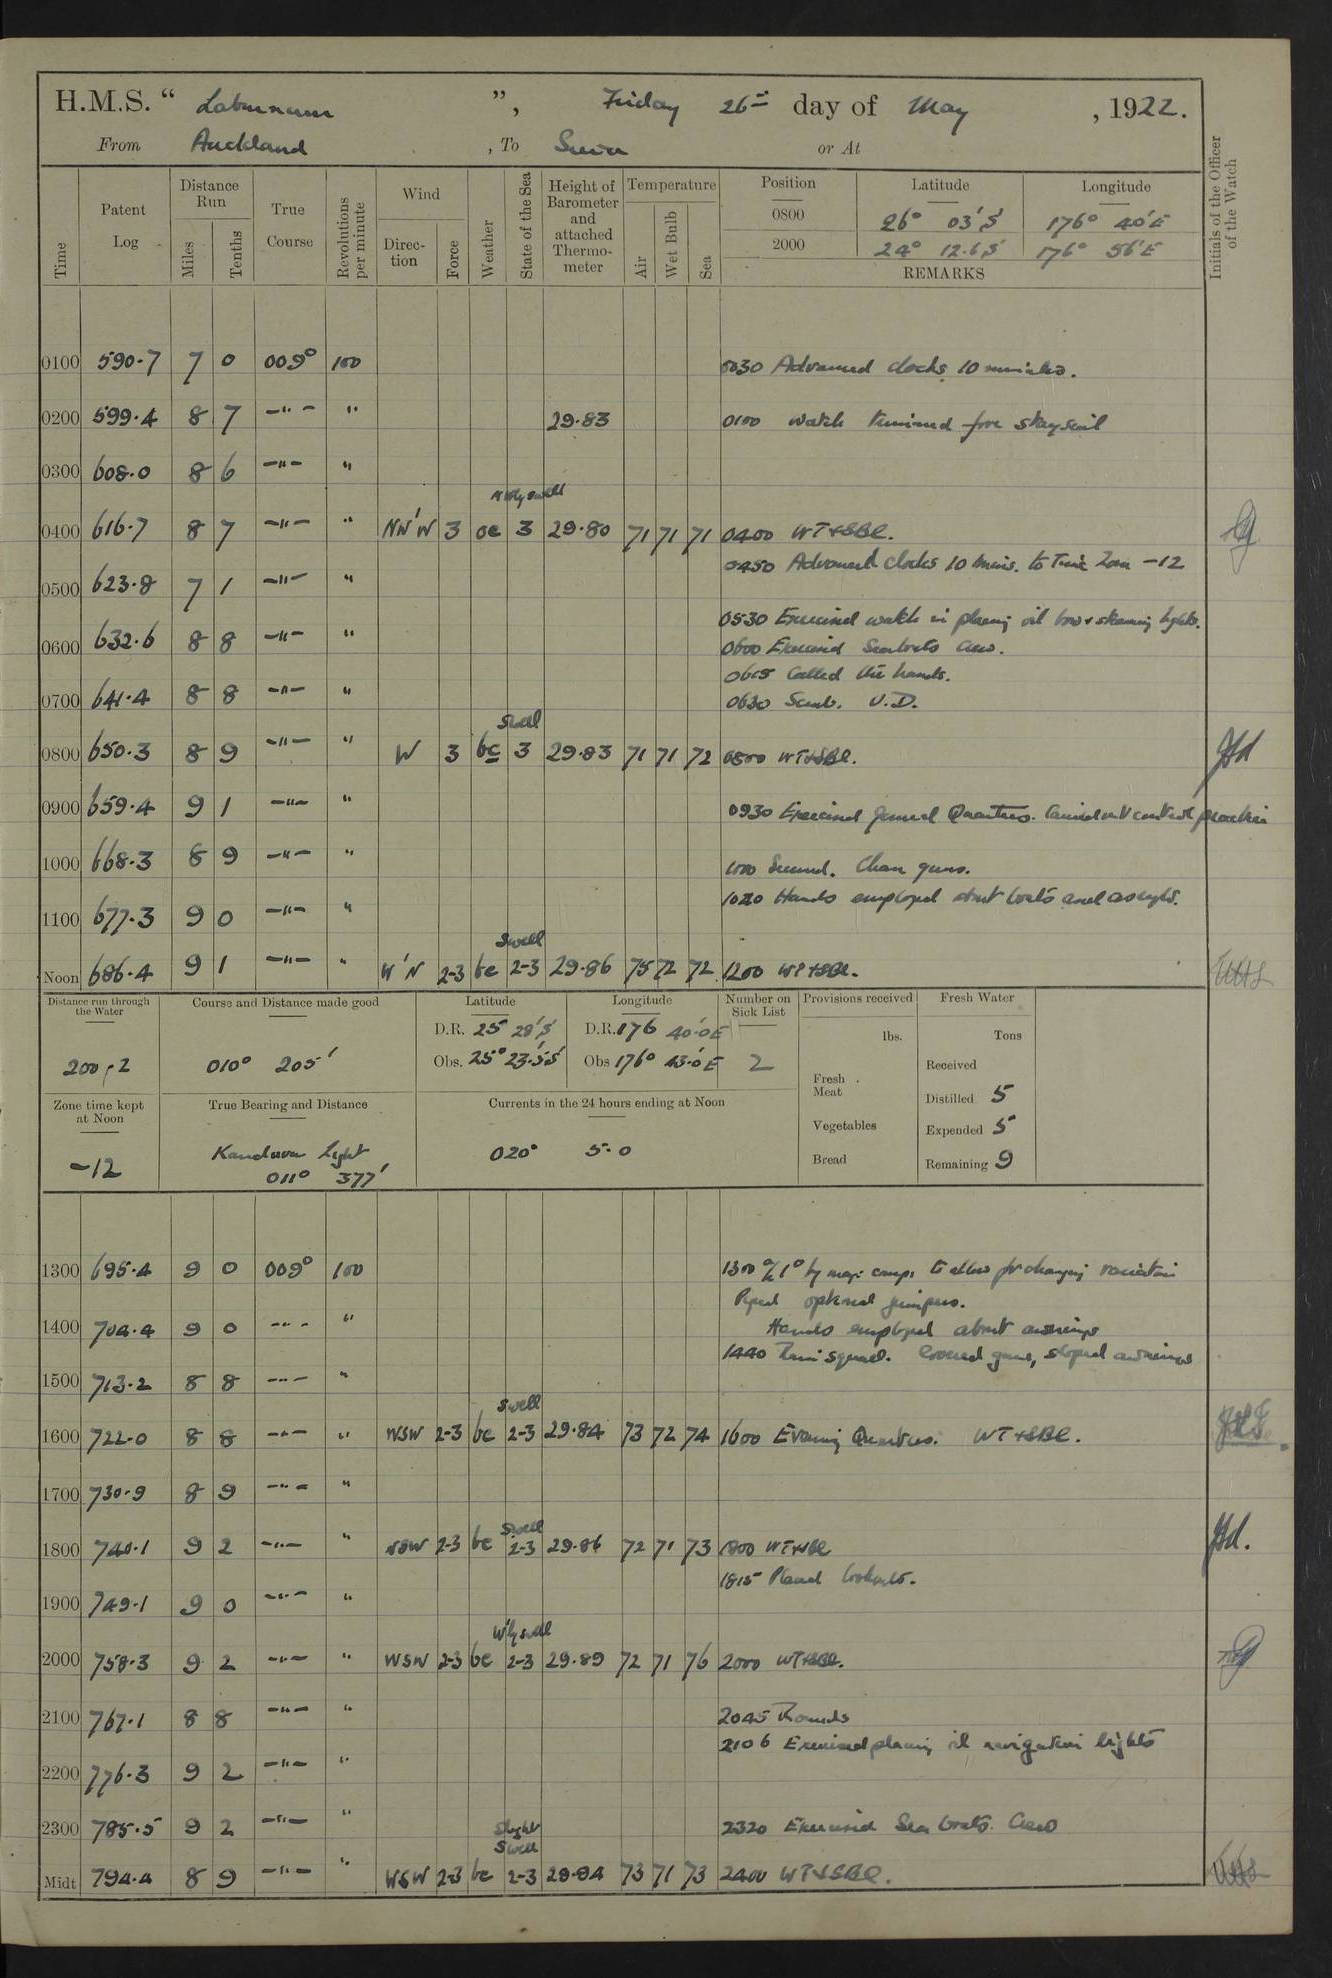 H.M.S. “ Laburnum ”, Friday 26th day of May , 1922.
From Auckland , To Suva or At
Time
Patent Log
Distance Run
Miles
Tenths
True Course
Revolutions per minute
Wind
Direc- tion
Force
Weather
State of the Sea
Height of Barometer and attached Thermo- meter
Temperature
Air
Wet Bulb
Sea
Position Latitude Longitude
0800 26° 03' S 176° 40' E
2000 24° 12.6 S 176° 56' E
REMARKS
Initials of the Officer of the Watch
0100 590.7 7 0 009° 100 0030 Advanced clocks 10 minutes.
0200 599.4 8 7 —"— " 29.83 0100 Watch trimmed fore staysail
0300 608.0 8 6 —"— "
N'ly swell
0400 616.7 8 7 —"— " NW'W 3 oc 3 29.80 71 71 71 0400 WT+SBC.
0450 Advanced clocks 10 mins. to Time Zone -12
0500 623.8 7 1 —"— "
0530 Exercised watch in placing oil bow + steaming lights.
0600 632.6 8 8 —"— " 0600 Exercised Seaboats crew.
0615 Called the hands.
0700 641.4 8 8 —"— " 0630 Scrub. U.D.
Swell
0800 650.3 8 9 —"— " W 3 bc 3 29.83 71 71 72 0800 WT+SBC.
0900 659.4 9 1 —"— " 0930 Exercised General Quarters. Carried out control practice
1000 668.3 8 9 —"— " 1000 Secured. Clean guns.
1020 Hands employed about boats and as reqte.
1100 677.3 9 0 —"— "
Swell
Noon 686.4 9 1 —"— " W'N 2-3 bc 2-3 29.86 75 72 72 1200 WT+SBC.
Distance run through the Water
200.2
Course and Distance made good
010° 205'
Latitude
D.R. 25 28' S
Obs. 25° 23.5 S
Longitude
D.R. 176 40.0 E
Obs 176° 43.0 E
Number on Sick List
2
Provisions received
lbs.
Fresh Meat
Vegetables
Bread
Fresh Water
Tons
Received
Distilled 5
Expended 5
Remaining 9
Zone time kept at Noon
-12
True Bearing and Distance
Kandavu Light
011° 377'
Currents in the 24 hours ending at Noon
020° 5.0
1300 695.4 9 0 009° 100 1300 a/c 1° by mag: comp. to allow for changing variation
Piped optional jumpers.
1400 704.4 9 0 —"— " Hands employed about awnings
1440 Rain squall. Covered guns, sloped awnings
1500 713.2 8 8 —"— "
Swell
1600 722.0 8 8 —"— " WSW 2-3 bc 2-3 29.84 73 72 74 1600 Evening Quarters. WT+SBC.
1700 730.9 8 9 —"— "
Swell
1800 740.1 9 2 —"— " WSW 2-3 bc 2-3 29.86 72 71 73 1800 WT+SBC
1815 Placed lookouts.
1900 749.1 9 0 —"— "
W'ly swell
2000 758.3 9 2 —"— " WSW 2-3 bc 2-3 29.89 72 71 76 2000 WT+SBC.
2100 767.1 8 8 —"— " 2045 Rounds
2106 Exercised placing oil navigation lights
2200 776.3 9 2 —"— "
2300 785.5 9 2 —"— " 2320 Exercised Sea boats crew
Slight Swell
Midt 794.4 8 9 —"— " WSW 2-3 bc 2-3 29.94 73 71 73 2400 WT+SBC.